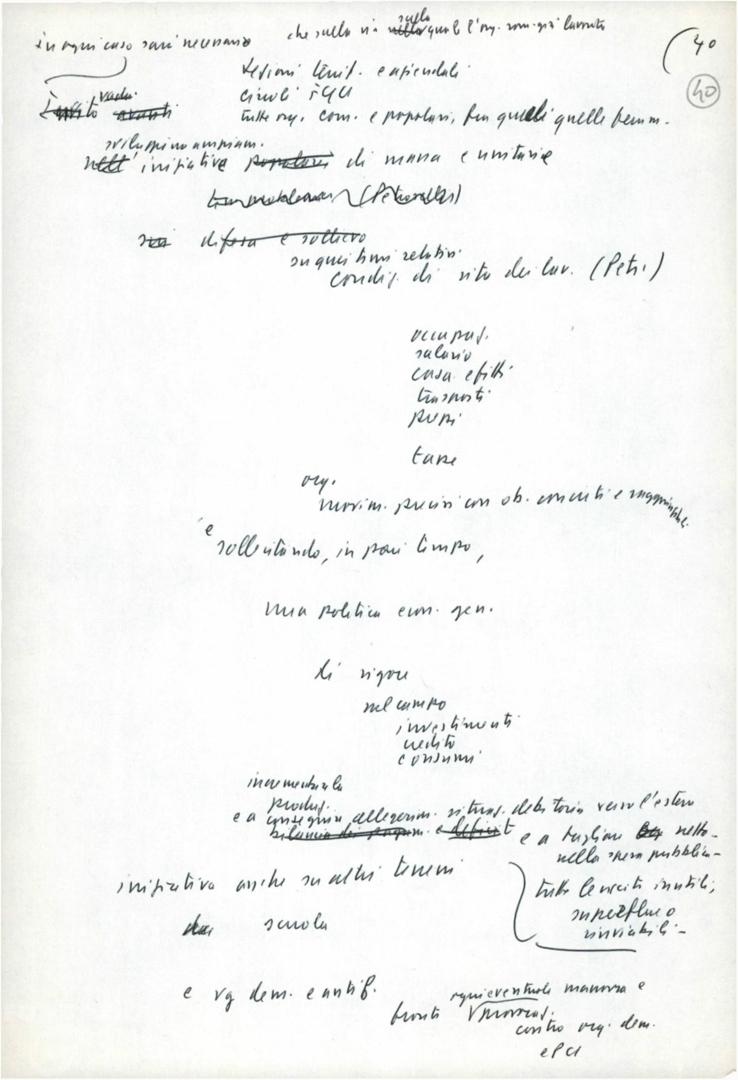 (40
40
in ogni caso sarà necessario che sulla via sulla nella quale l'org. rom. già lavorato
sezioni territ. e aziendali
vada.
Invito avanti circoli FGCI
tutte org. com. e popolari, fra quelli quelle femm.
sviluppino ampiam.
nell' iniziative popolari di massa e unitarie
(Petroselli)
sui difesa e sollievo
su questioni relative
condiz. di vita dei lav. (Petr.)
occupaz.
salario
casa e fitti
trasporti
prezzi
tasse
org.
movim. precisi con ob. concreti e raggiungibili
e
sollecitando, in pari tempo,
una politica econ. gen.
di rigore
nel campo
investimenti
credito
consumi
incrementarla
produz.
e a conseguire alleggerim. situaz. debitoria verso l'estero
bilancia dei pagam. e deficit e a tagliare netto
nella spesa pubblica
iniziativa anche su altri terreni
tutte le uscite inutili,
superflue o
rinviabili
scuola
e vg dem. e antif.
ogni eventuale manovra e
fronte provocaz.
contro org. dem.
e PCI